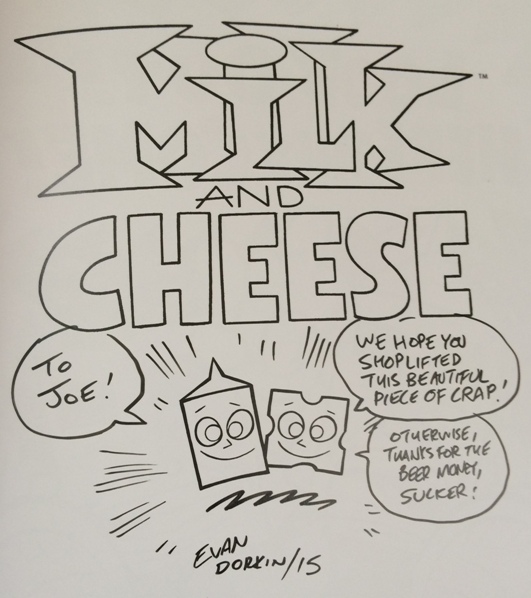 MILK™
AND
CHEESE
TO
JOE!
WE HOPE YOU
SHOPLIFTED
THIS BEAUTIFUL
PIECE OF CRAP!
OTHERWISE,
THANKS FOR THE
BEER MONEY,
SUCKER!
EVAN
DORKIN/15